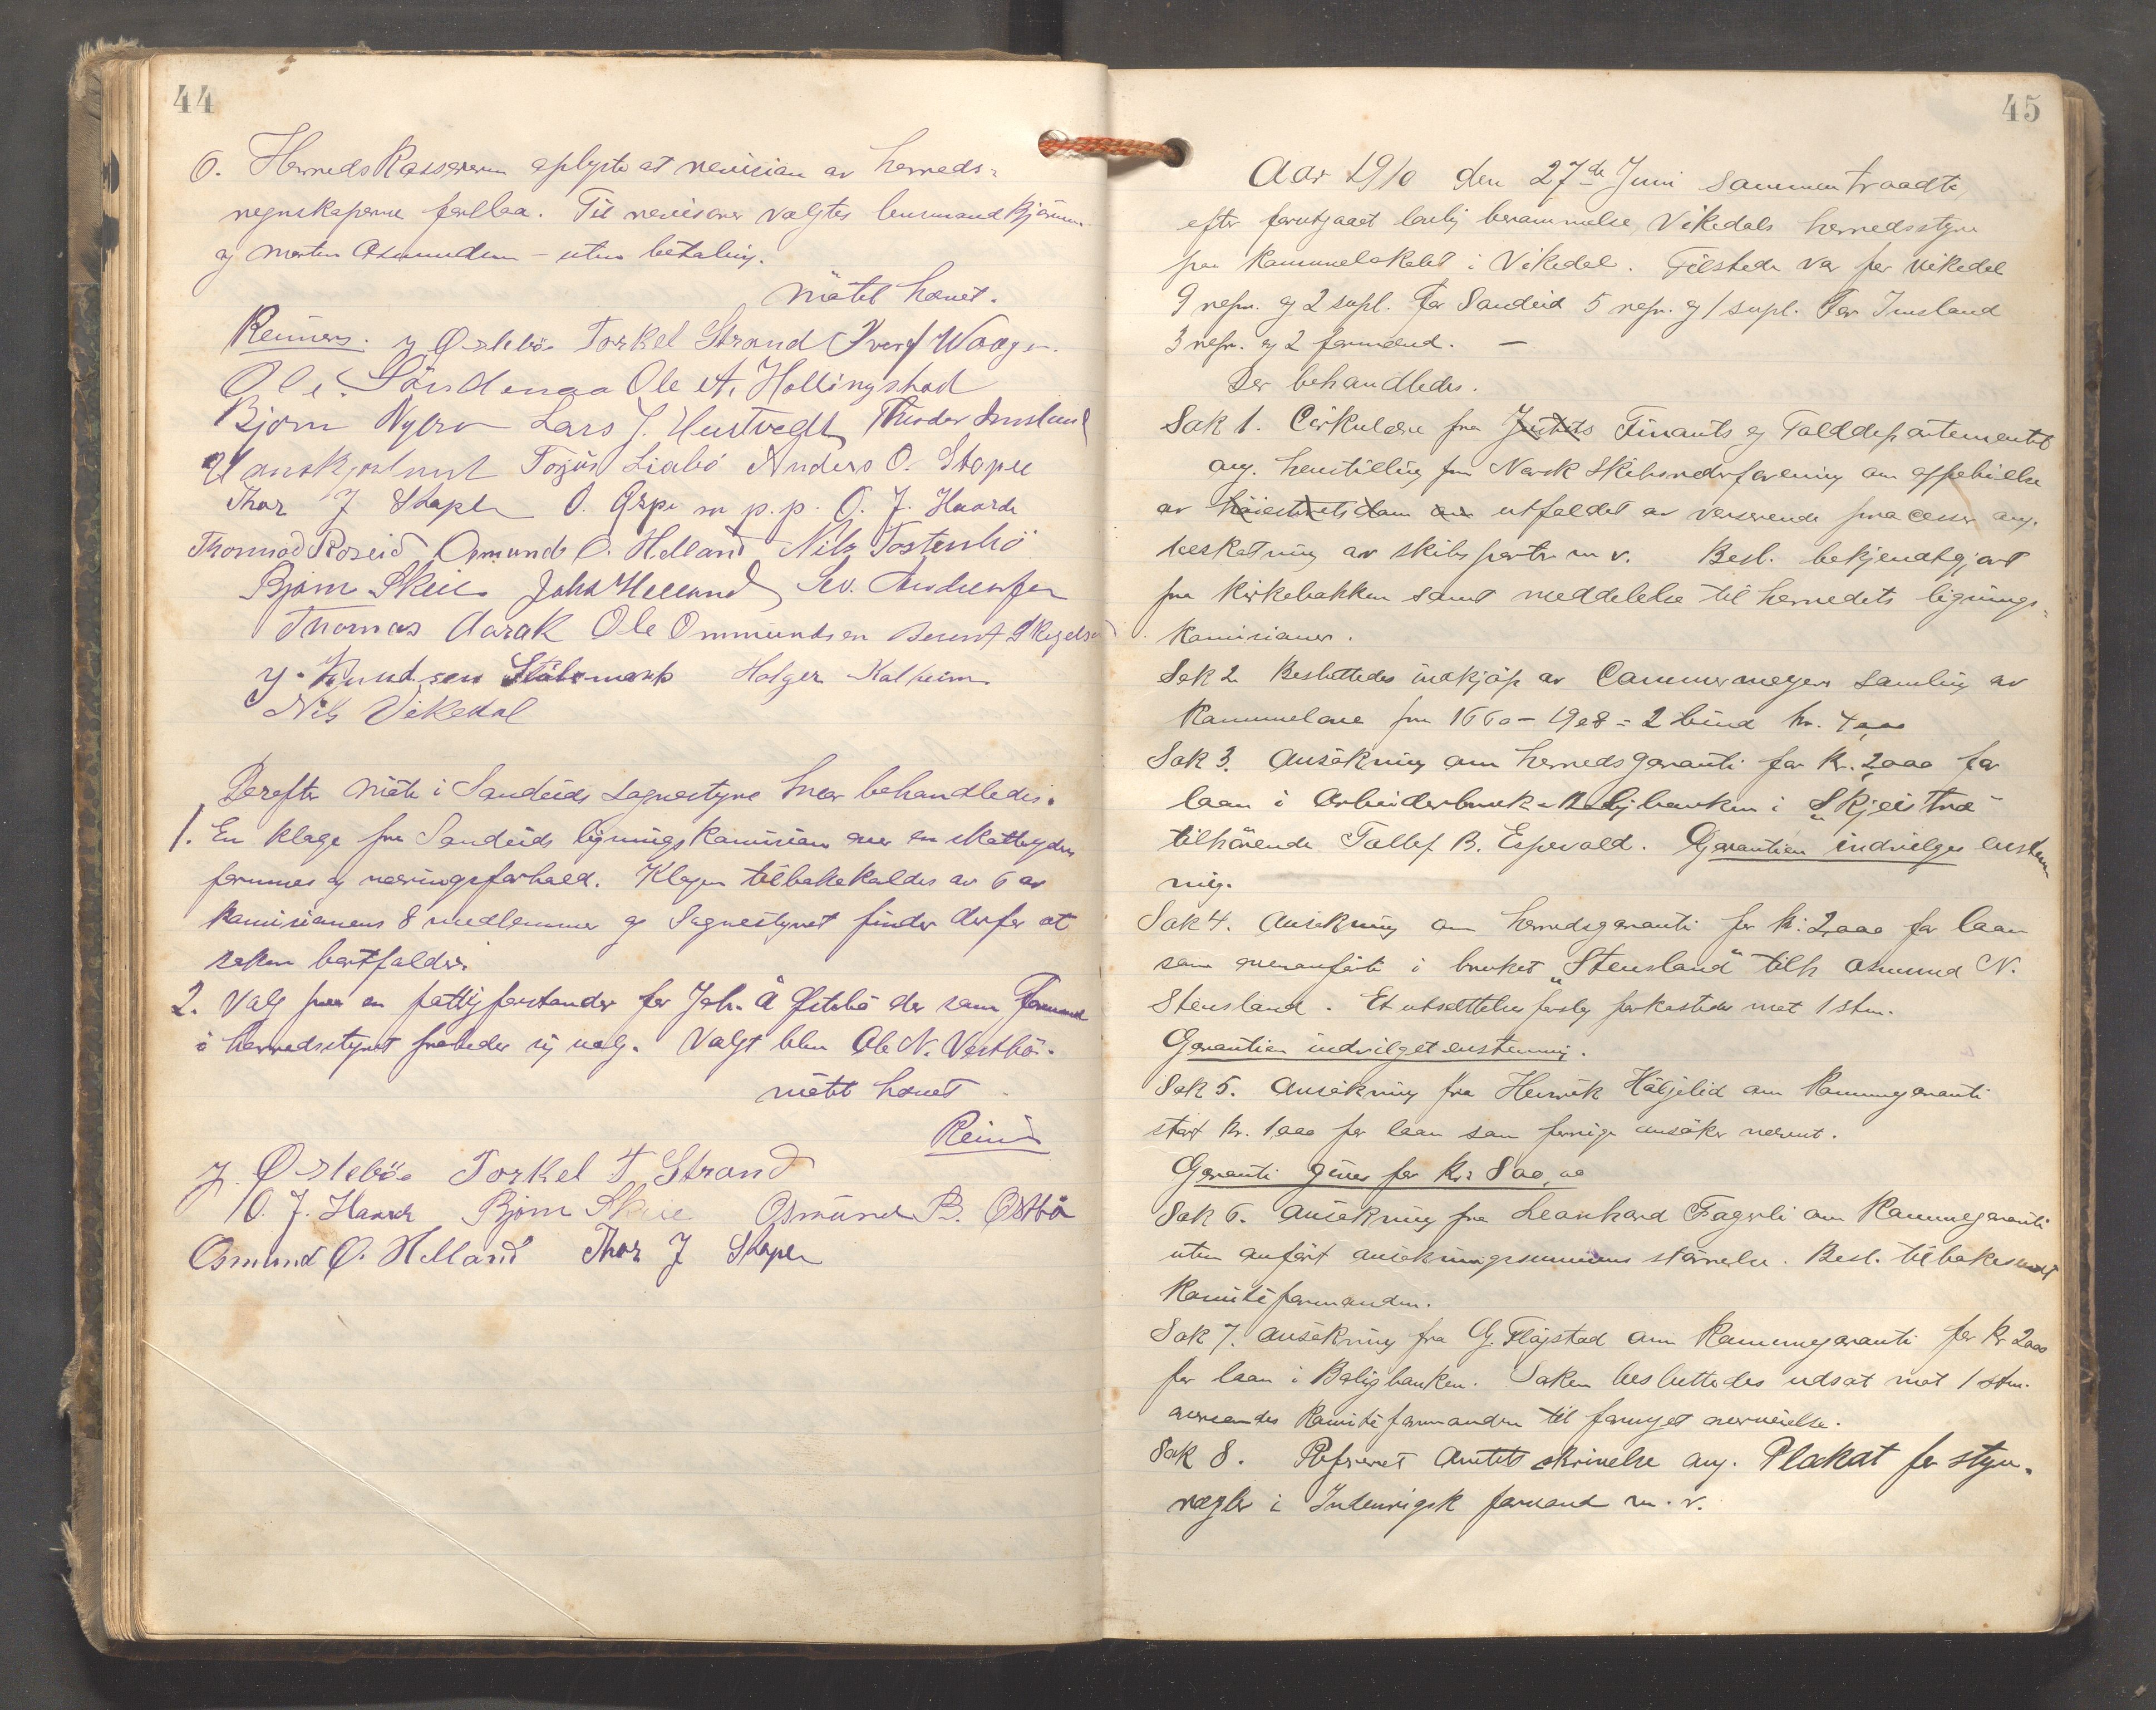 44
6. Herredskassereren oplyste at revision av herreds-
regnskaperne forelaa. Til revisorer valgtes lensmand Bjørnsen
og Morten Osmundsen – uten betaling.
Møtet hævet.
Reimers. J Østebø Torkel Strand Iver J Waage
Ole Søndenaa Ole A. Hollingstad
Bjørn Nygren Lars J. Hustvedt Theodor Imsland
Torjus Liabø Anders O. Stople
Thor J Stople O. Øspe m p.p. O. J. Haarde
Thormod Roseid Osmund O. Helland Nils Tostenbø
Bjørn Skeie John Helland Sev. Andreassen
Thomas Aarak Ole Ommundsen Berent
J. Knudsen Stølemark Holger Kalheim
Nils Vikedal
Derefter møte i Sandeids Sognestyre hvor behandledes.
1. En klage fra Sandeids ligningskomision over en skatteyders
formues og næringsforhold. Klagen tilbakekaldes av 6 av
komisionens 8 medlemmer og Sognestyret finder derfor at
saken bortfalder.
2. Valg paa en fattigforstander for Joh. Å Østebø der som Formand
i herredsstyret frabeder sig valg. Valgt blev Ole N. Vestbø.
møtet hævet
Reimers
J. Østebø Torkel T Strand
O. J. Haarde Bjørn Skeie Osmund B. Østbø
Osmund O. Helland Thor J Stople
45
Aar 1910 den 27de Juni sammentraadte,
efter forutgaaet lovlig berammelse, Vikedals herredsstyre
paa Kommunelokalet i Vikedal. Tilstede var for Vikedal
9 repr. og 2 supl. For Sandeid 5 repr. og 1 supl. For Imsland
3 repr. og 2 formænd. –
Der behandledes.
Sak 1. Cirkulære fra Justits Finants og Tolddepartementet
ang. henstilling fra Norsk Skibsrederforening om oppebielse
av høiesteretsdom om utfaldet av verserende processer ang.
beskatning av skibsparter m v. Besl. bekjendtgjort
paa kirkebakken samt meddelelse til herredets lignings-
komisioner.
Sak 2. Besluttedes indkjøp av Cammermeyers samling av
Kommunelove fra 1660 – 1908 = 2 bind
Sak 3. Ansøkning om herredsgaranti for Kr. 2000 for
laan i Arbeiderbruk- & Boligbanken i "Skjeistræ"
tilhørende Tollef B. Espevold. Garantien indvilges enstem
mig.
Sak 4. Ansøkning om herredsgaranti for kr: 2000 for laan
som ovenanførte i bruket "Stensland" tilh Osmund N.
Stensland. Et utsættelsesforslag forkastedes mot 1 stm.
Garantien indvilget enstemmig.
Sak 5. Ansøkning fra Henrik Høljelid om Kommunegaranti
stort kr. 1000 for laan som forrige ansøker nævnt.
Garanti gives for Kr: 800,00
Sak 6. Ansøkning fra Leonhard Fagerli om Kommunegaranti
uten anført ansøkningssummens størrelse. Besl. tilbakesendt
Komiteformanden.
Sak 7. Ansøkning fra G. Fløgstad om Kommunegaranti for Kr 2000
for laan i Boligbanken. Saken besluttedes udsat mot 1 stm.
oversendes Komiteformanden til fornyet overveielse.
Sak 8. Refereret Amtets skrivelse ang. Plakat for styre-
regler i Indenrigsk farvand m.v.